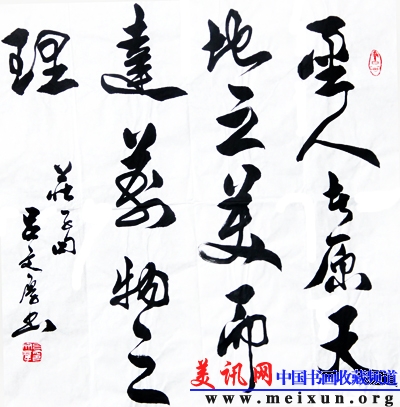 聖人者原天
地之美而
達萬物之
理
莊子句
呂文书
美讯网 中国书画收藏频道
www.meixun.org